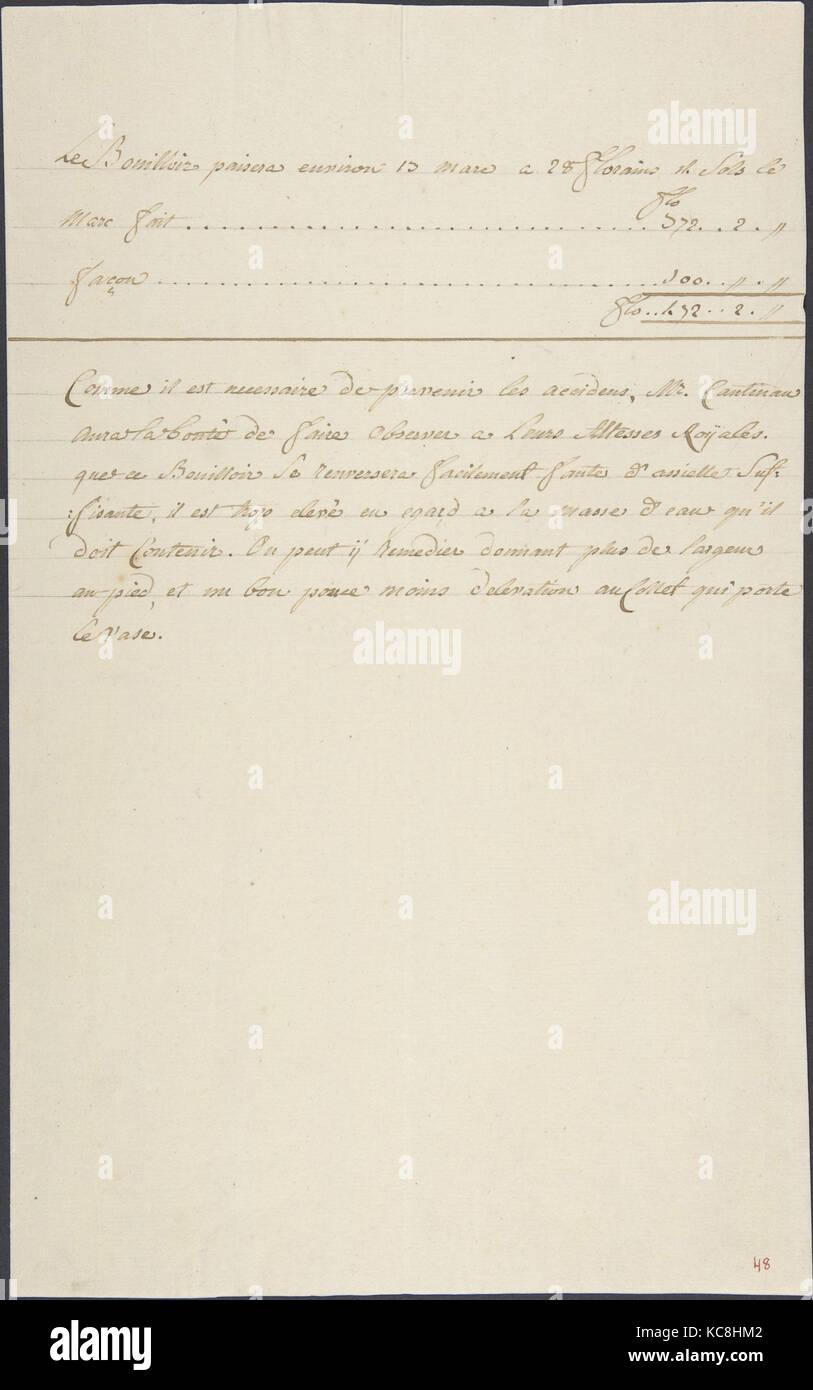 Le Bouilloir paisera environ 13 marc a 28 florains 14 Sols le
flo
Marc fait ........ 372 .. 2 . "
façon ........ 100 .. " . "
flo .. 472 .. 2 . "
Comme il est necessaire de prevenir les accidens, Mr. Cantineau
aura la bonté de faire observer a Leurs Altesses Roÿales.
que ce Bouilloir Se renversera facilement faute d'assiette Suf=
:fisante, il est trop elevé en egard a la masse d'eau qu'il
doit Contenir. On peut ÿ remedier donnant plus de largeur
au pied, et un bon pouce moins d'elevation au Collet qui porte
le Vase.
48
alamy
alamy
alamy
alamy
alamy
Image ID: KC8HM2
www.alamy.com